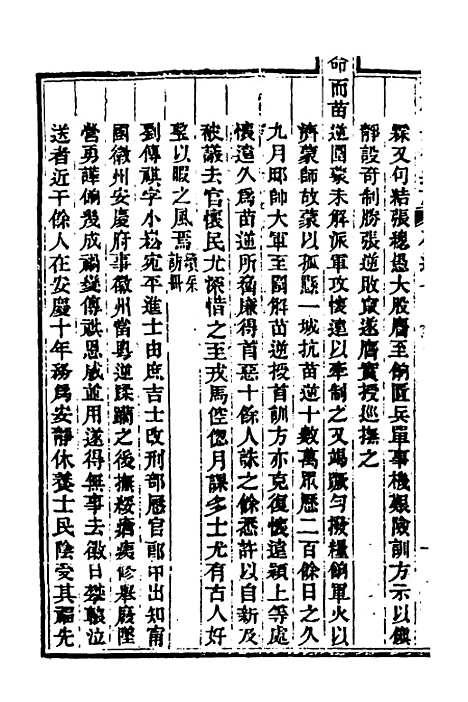 霖又句結張總愚大股麕至餉匱兵單事機艱險訓方示以鎮
靜設奇制勝張逆敗竄遂膺實授巡撫之
命而苗逆圍蒙未解派軍攻懷遠以牽制之又竭蹶勻撥糧餉軍火以
濟蒙師故蒙以孤懸一城抗苗逆十數萬眾歷二百餘日之久
九月邸帥大軍至圍解苗逆授首訓方亦克復懷遠潁上等處
懷遠久為苗逆所窟廉得首惡十餘人誅之餘悉許以自新及
被議去官懷民尤深惜之至戎馬倥偬月課多士尤有古人好
整以暇之風焉續采訪冊
劉傳祺字小崧宛平進士由庶吉士改刑部歷官郎中出知甯
國徽州安慶府事徽州當粵逆蹂躪之後撫綏瘡痍修舉廢墜
營勇譁餉幾成禍變傳祺恩威並用遂得無事去徽日攀轅泣
送者近千餘人在安慶十年務為安靜休養士民陰受其福先